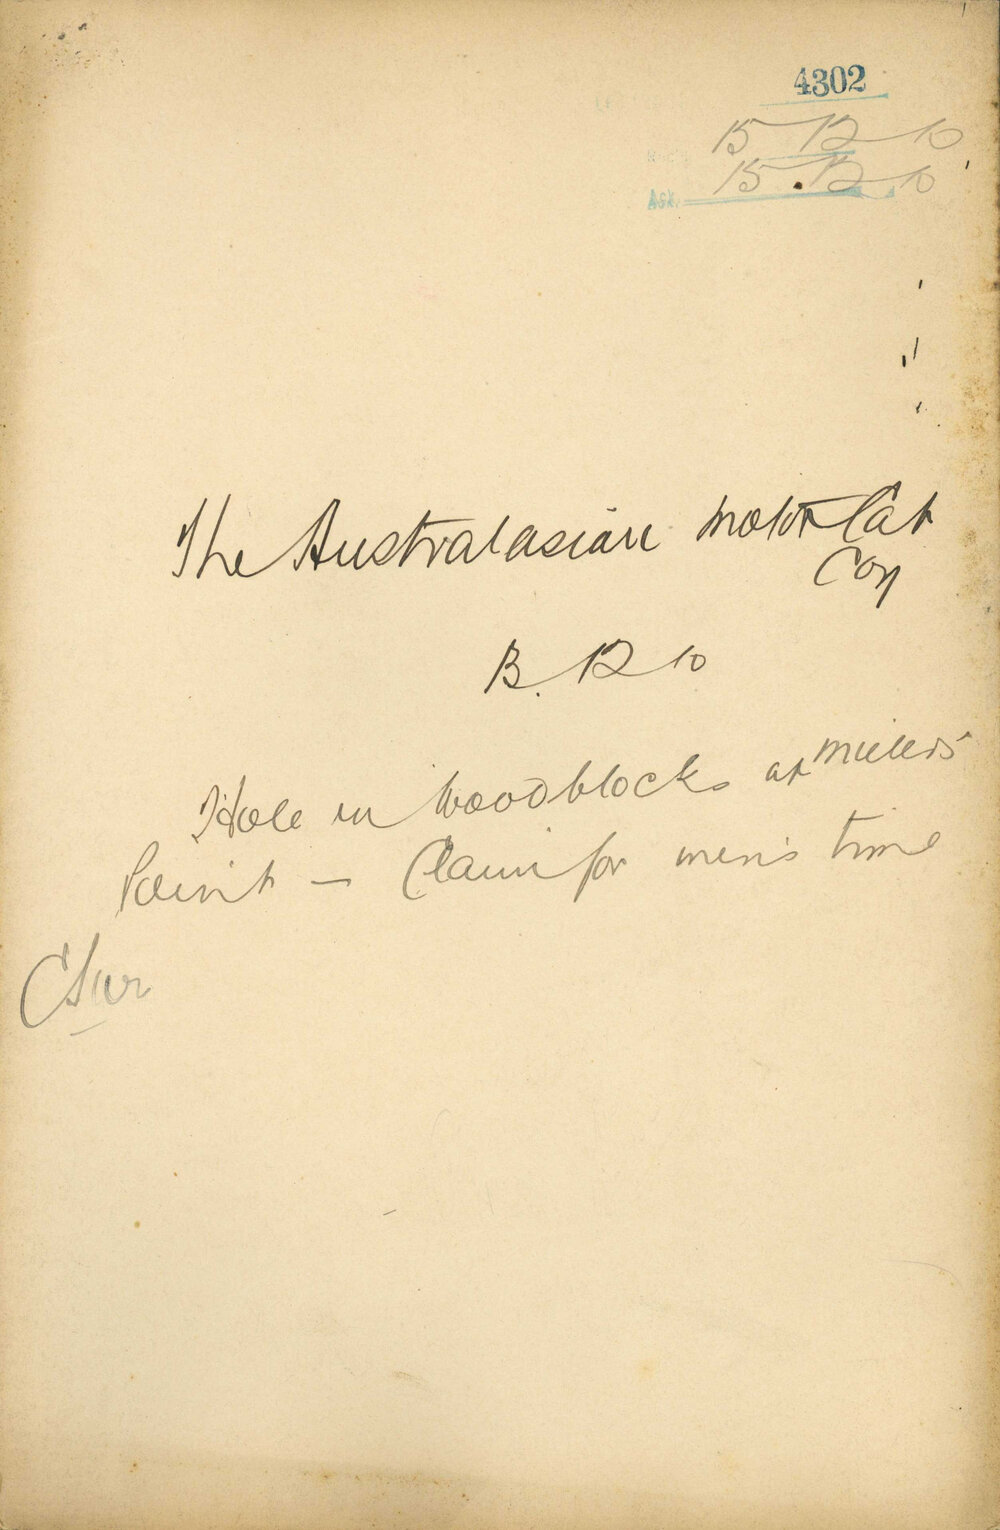 4302
15 12 10
Ack. 15.12 10
The Australasian Motor Car
Coy
13. 12 10
Hole in Woodblocks at Millers
Point – Claim for men's time